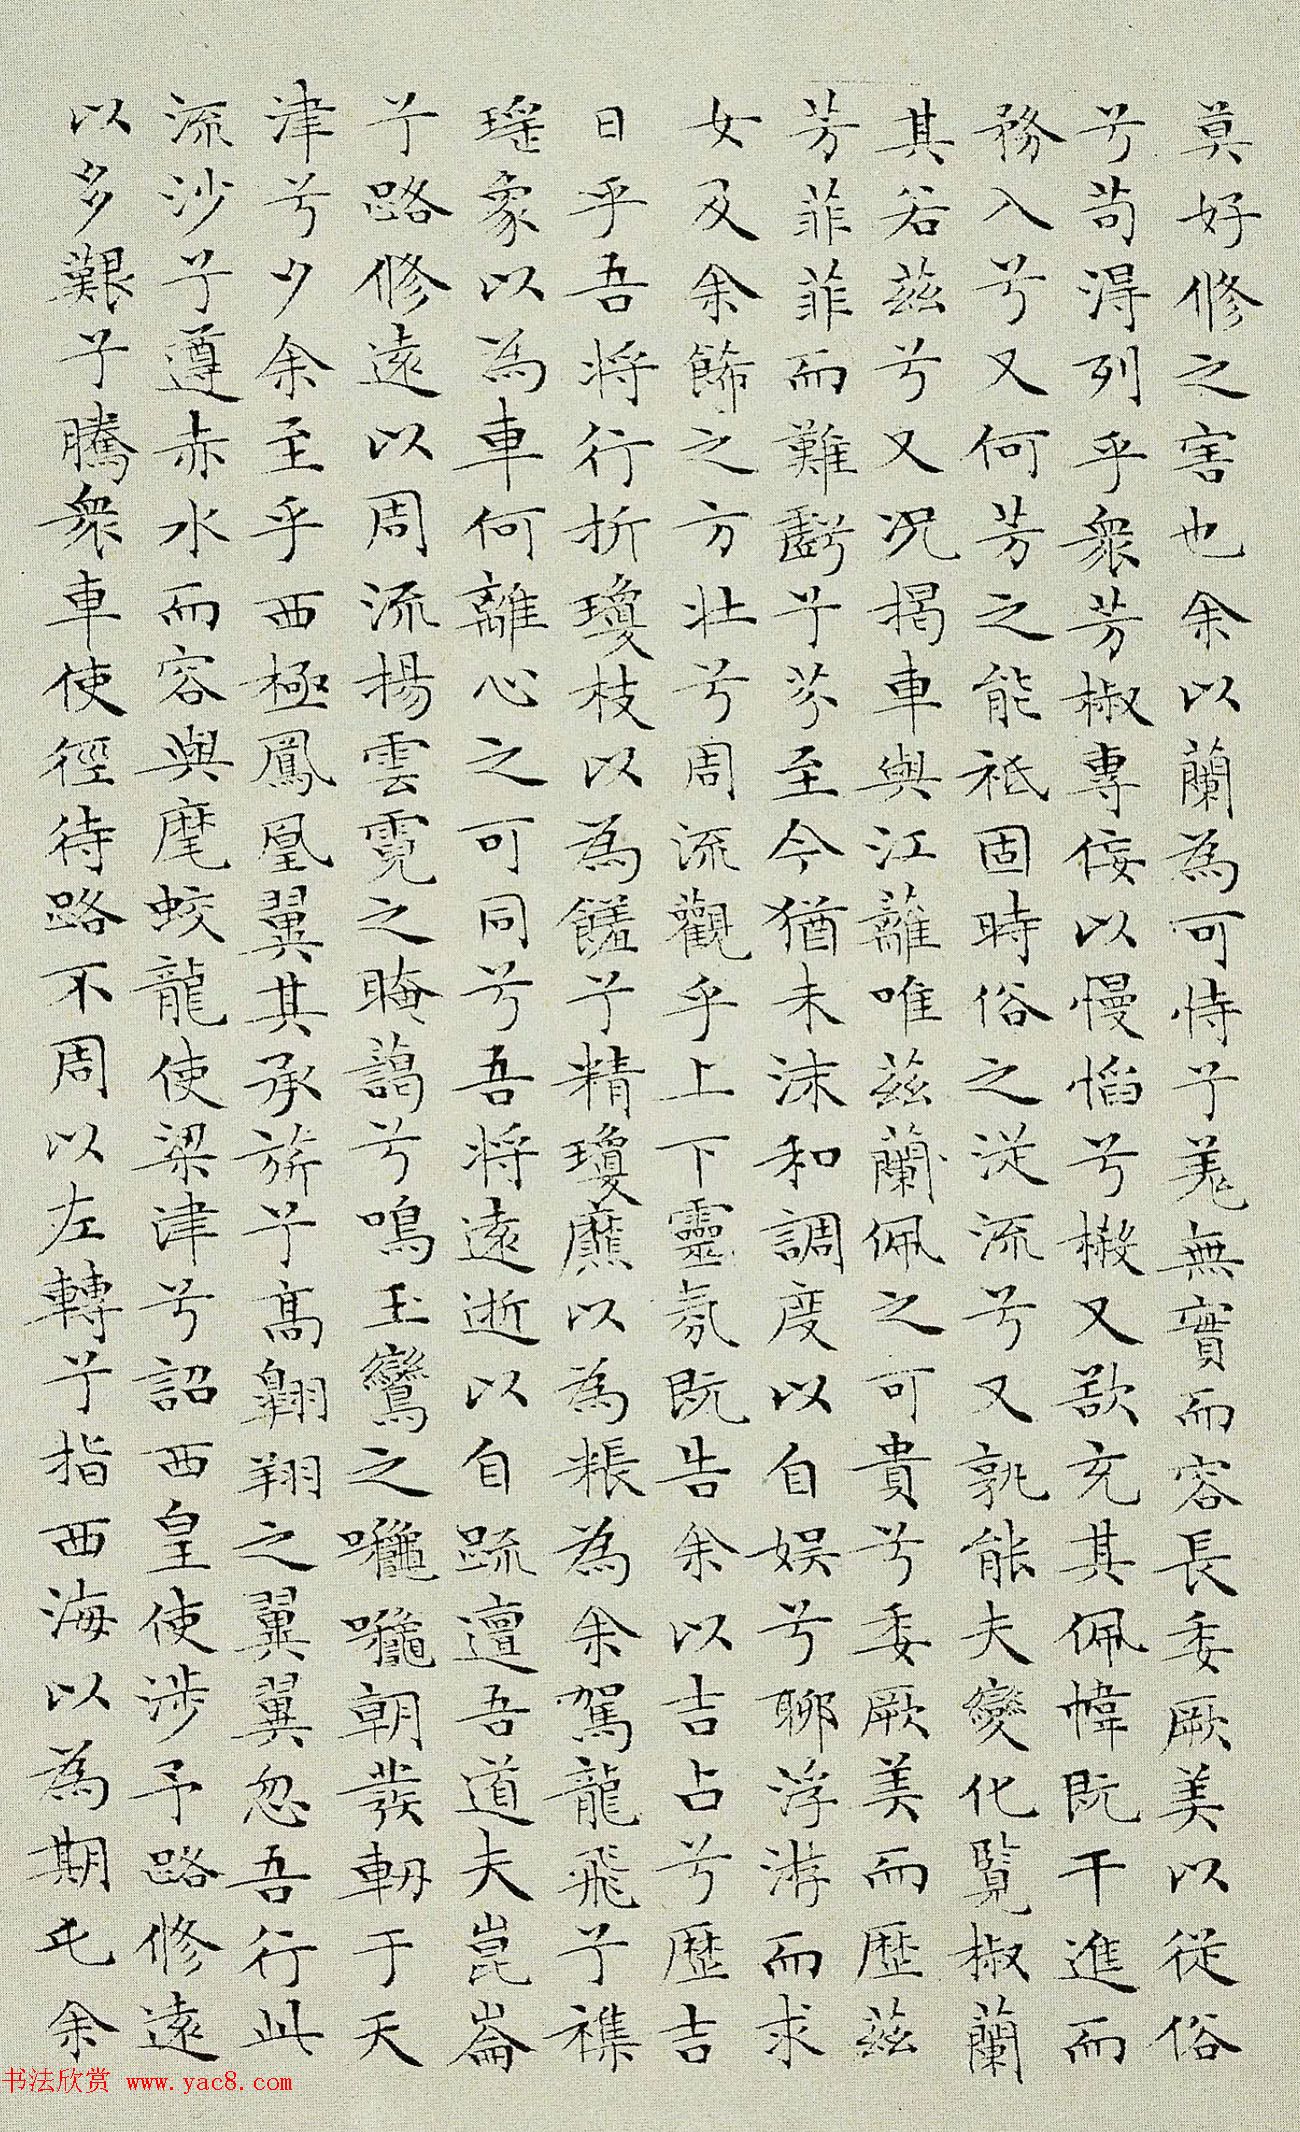 莫好脩之害也余以蘭為可恃兮羌無實而容長委厥美以從俗
兮苟得列乎衆芳椒專佞以慢慆兮樧又欲充其佩幃既干進而
務入兮又何芳之能祗固時俗之從流兮又孰能夫變化覧椒蘭
其若茲兮又況揭車與江蘺唯茲蘭佩之可貴兮委厥美而歷茲
芳菲菲而難虧兮芬至今猶未沬和調度以自娛兮聊浮游而求
女及余飾之方壯兮周流觀乎上下靈氛既告余以吉占兮歷吉
日乎吾將行折瓊枝以為饈兮精瓊爢以為粻為余駕龍飛兮襍
瑤象以為車何離心之可同兮吾將遠逝以自疏邅吾道夫崑崙
兮路脩遠以周流揚雲霓之晻藹兮鳴玉鸞之嚨嚨朝發軔于天
津兮夕余至乎西極鳳凰翼其承旂兮高翱翔之翼翼忽吾行此
流沙兮遵赤水而容與麾蛟龍使梁津兮詔西皇使涉予路脩遠
以多艱兮騰衆車使徑待路不周以左轉兮指西海以為期屯余
书法欣赏 www.yac8.com